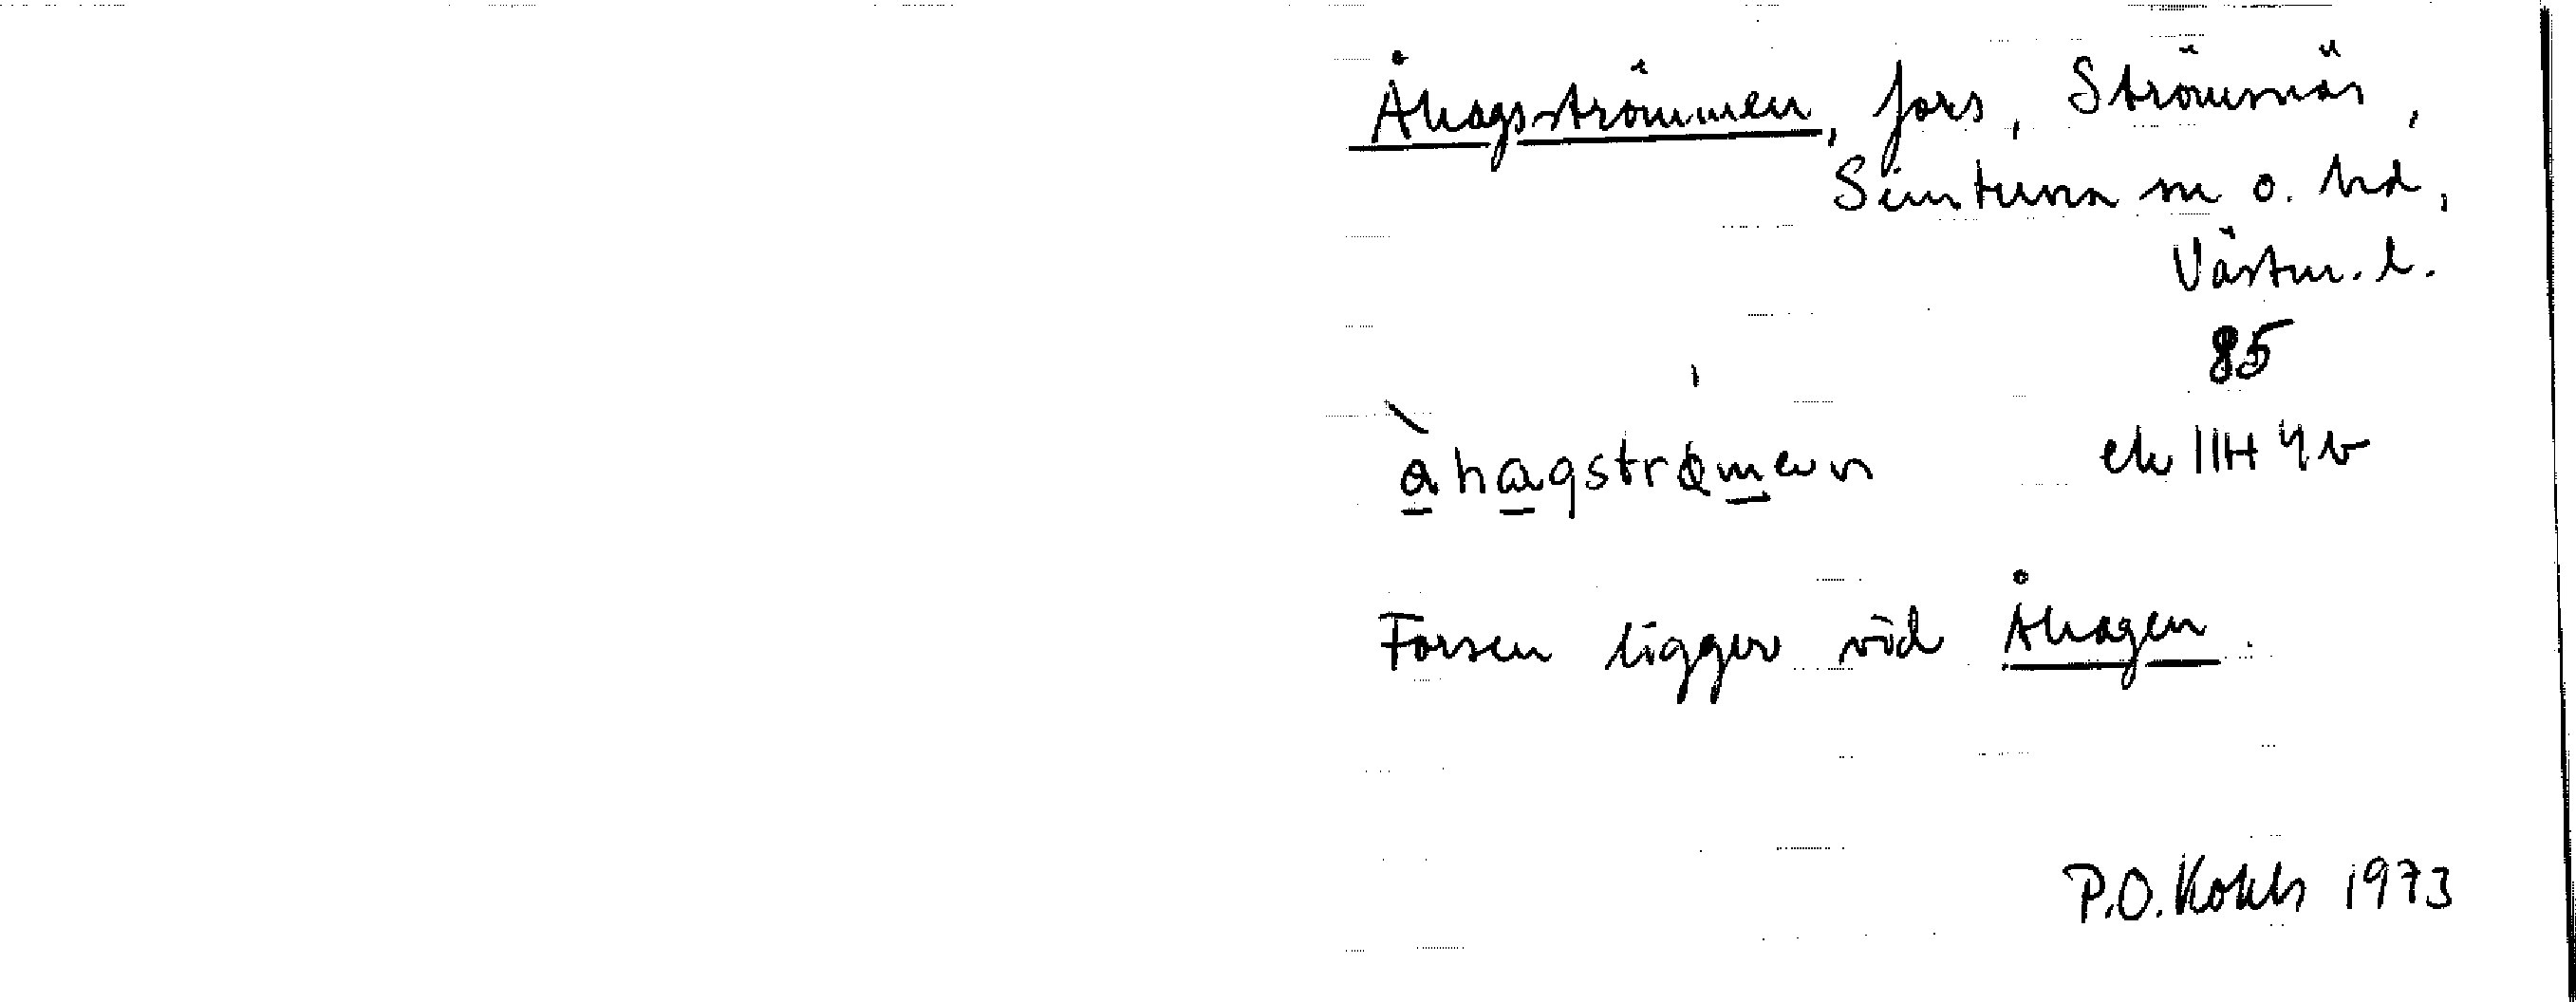 Åhagsströmmen, fors, Strömsnäs,
Simtuna sn o. hd,
Västm. l.
85
åhagströmen ek 11H 4b
Forsen ligger vid Åhagen.
P.O. 1973